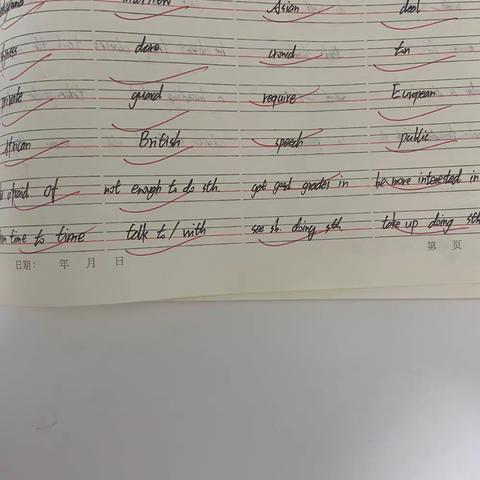 interview Asian deal
dare crowd ton
private guard require European
African British speech public
afraid of not enough to do sth. get good grades in be more interested in
time to time talk to / with see sb. doing sth. take up doing sth
第 页
日期: 年 月 日